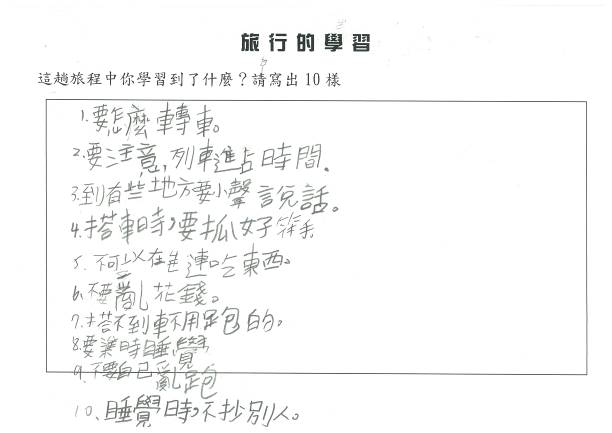 旅行的學習
這趟旅程中你學習到了什麼？請寫出10樣
1.要怎麼轉車。
2.要注意,列車進占時間.
3.到有些地方要小聲說話。
4.搭車時,要抓好等手
5.不可以在車連吃東西。
6.不要亂花錢。
7.搭不到車不用跑的。
8.要準時睡覺
9.不要自己亂跑
10、睡覺時,不抄別人。